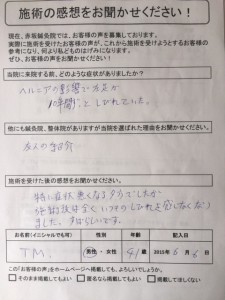 施術の感想をお聞かせください！
現在、赤坂鍼灸院では、お客様の声を募集しております。
実際に施術を受けたお客様の声が、これから施術を受けようとするお客様の
参考になり、何より私どものはげみになります。
ぜひ、お客様の声をお聞かせください！
当院に来院する前、どのような症状がありましたか？
ヘルニアの影響で左足が
10年間ずっとしびれていた。
他にも鍼灸院、整体院がありますが当院を選ばれた理由をお聞かせください。
友人の紹介
施術を受けた後の感想をお聞かせください！
特に症状悪くなる
施術後は全く いつもの しびれを感じなくなり
ました。すばらしいです。
お名前(イニシャルでも可)
性別
年齢
記入日
T.M.
男性・女性
41歳
2015年6月6日
この「お客様の声」をホームページへ掲載しても、よろしいでしょうか。
そのまま掲載してもよい
匿名なら掲載してもよい
掲載してほしくない